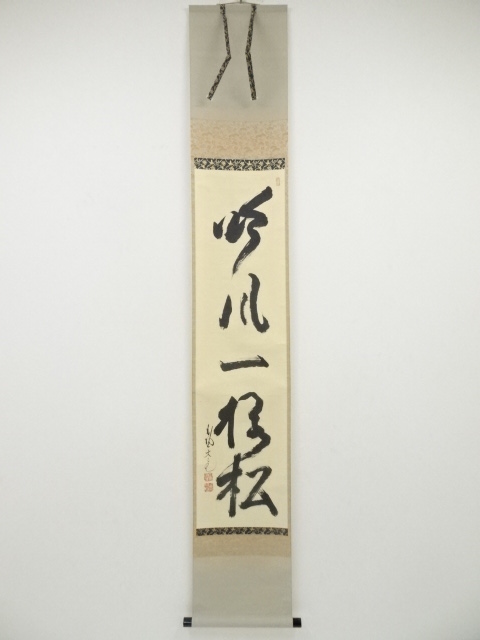 吟風一様松